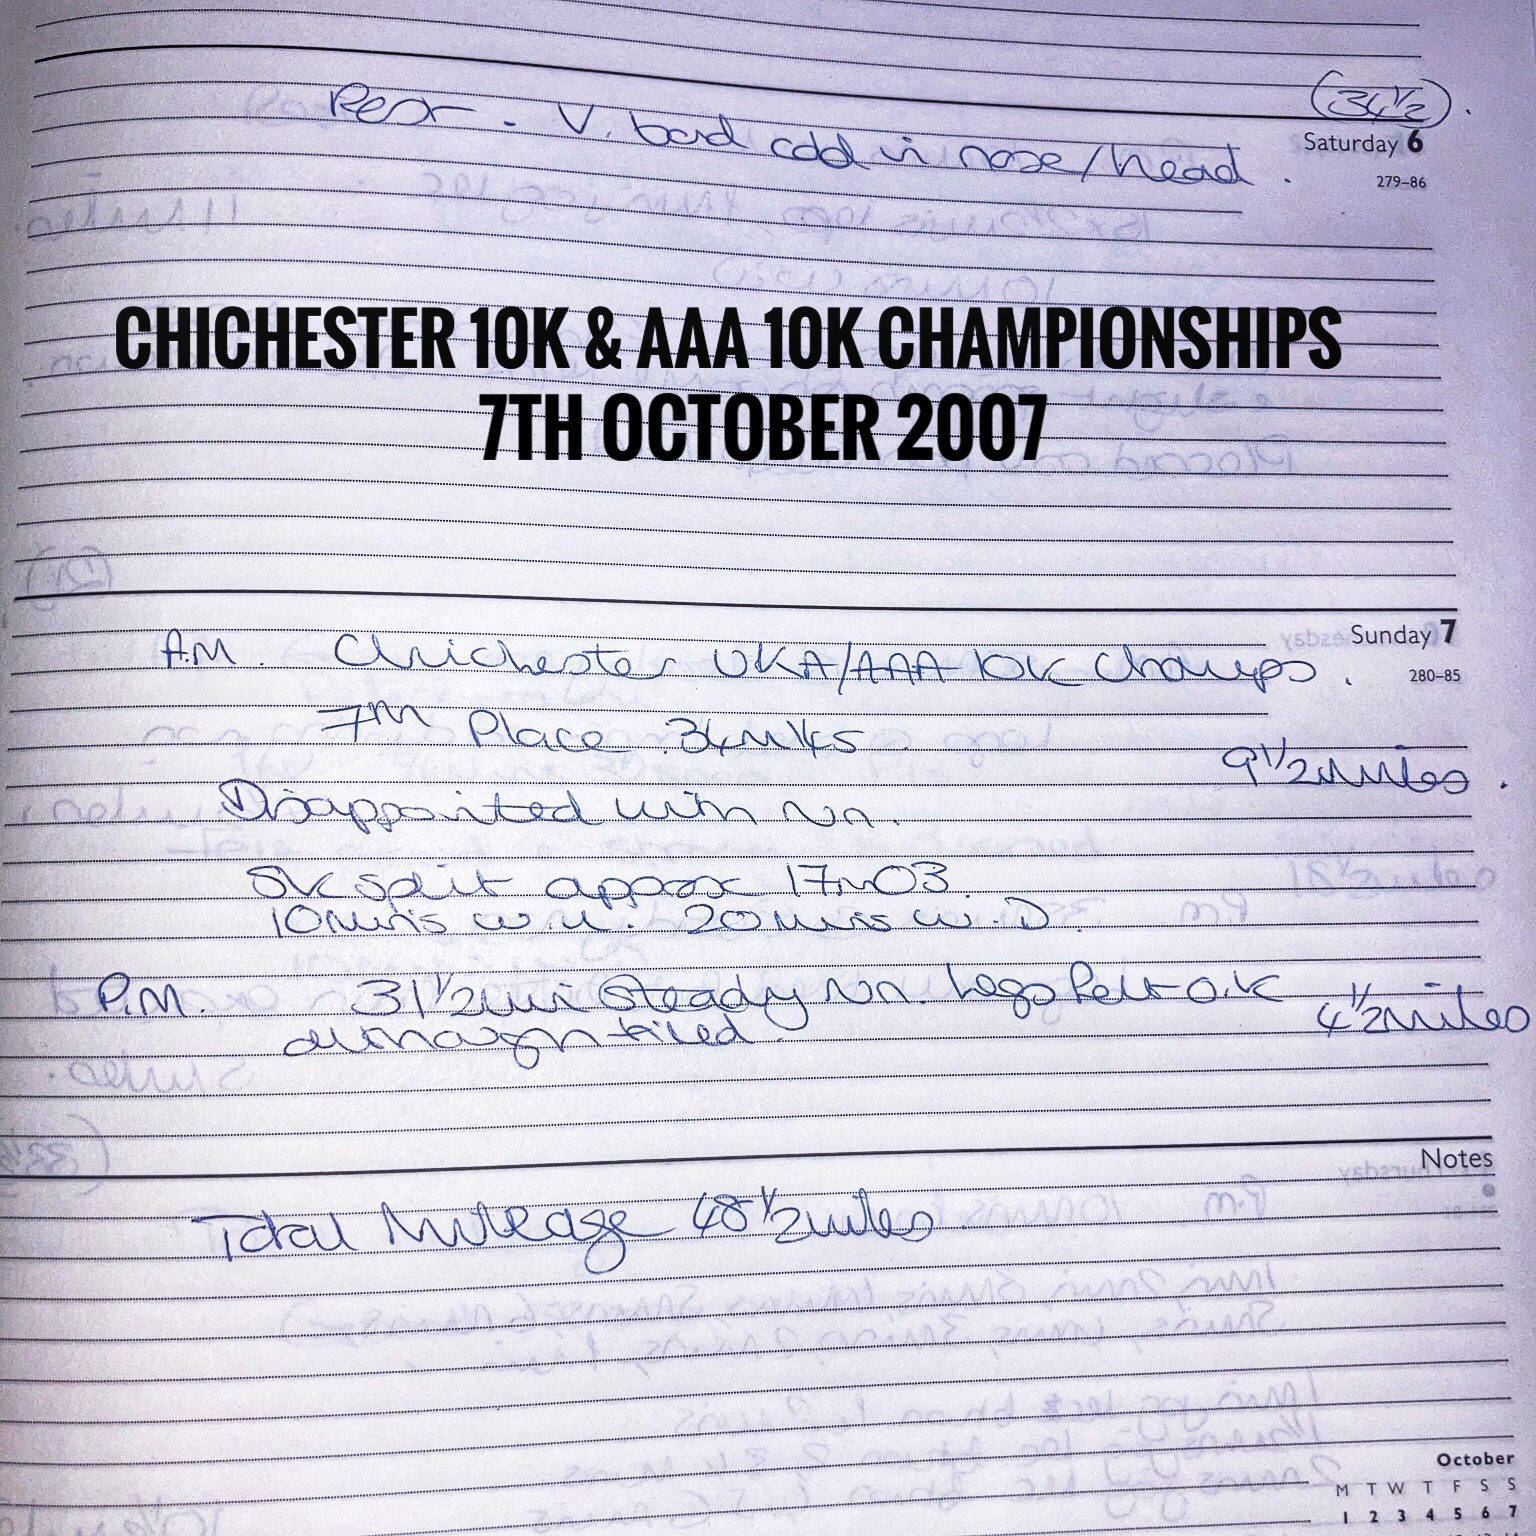 (34½).
Saturday 6
Rest - V. bad cold in nose/head.
279-86
CHICHESTER 10K & AAA 10K CHAMPIONSHIPS
7TH OCTOBER 2007
Sunday 7
A.M. Chichester UKA/AAA 10K Champs.
280-85
7th Place 34m14s
9½ miles.
Disappointed with run.
5k split approx 17m03
10mins w.u. 20mins w.D.
P.M. 31½min Steady run. Legs felt O.K
4½ miles
although tired.
Notes
Total Mileage 48½ miles.
October
M T W T F S S
1 2 3 4 5 6 7